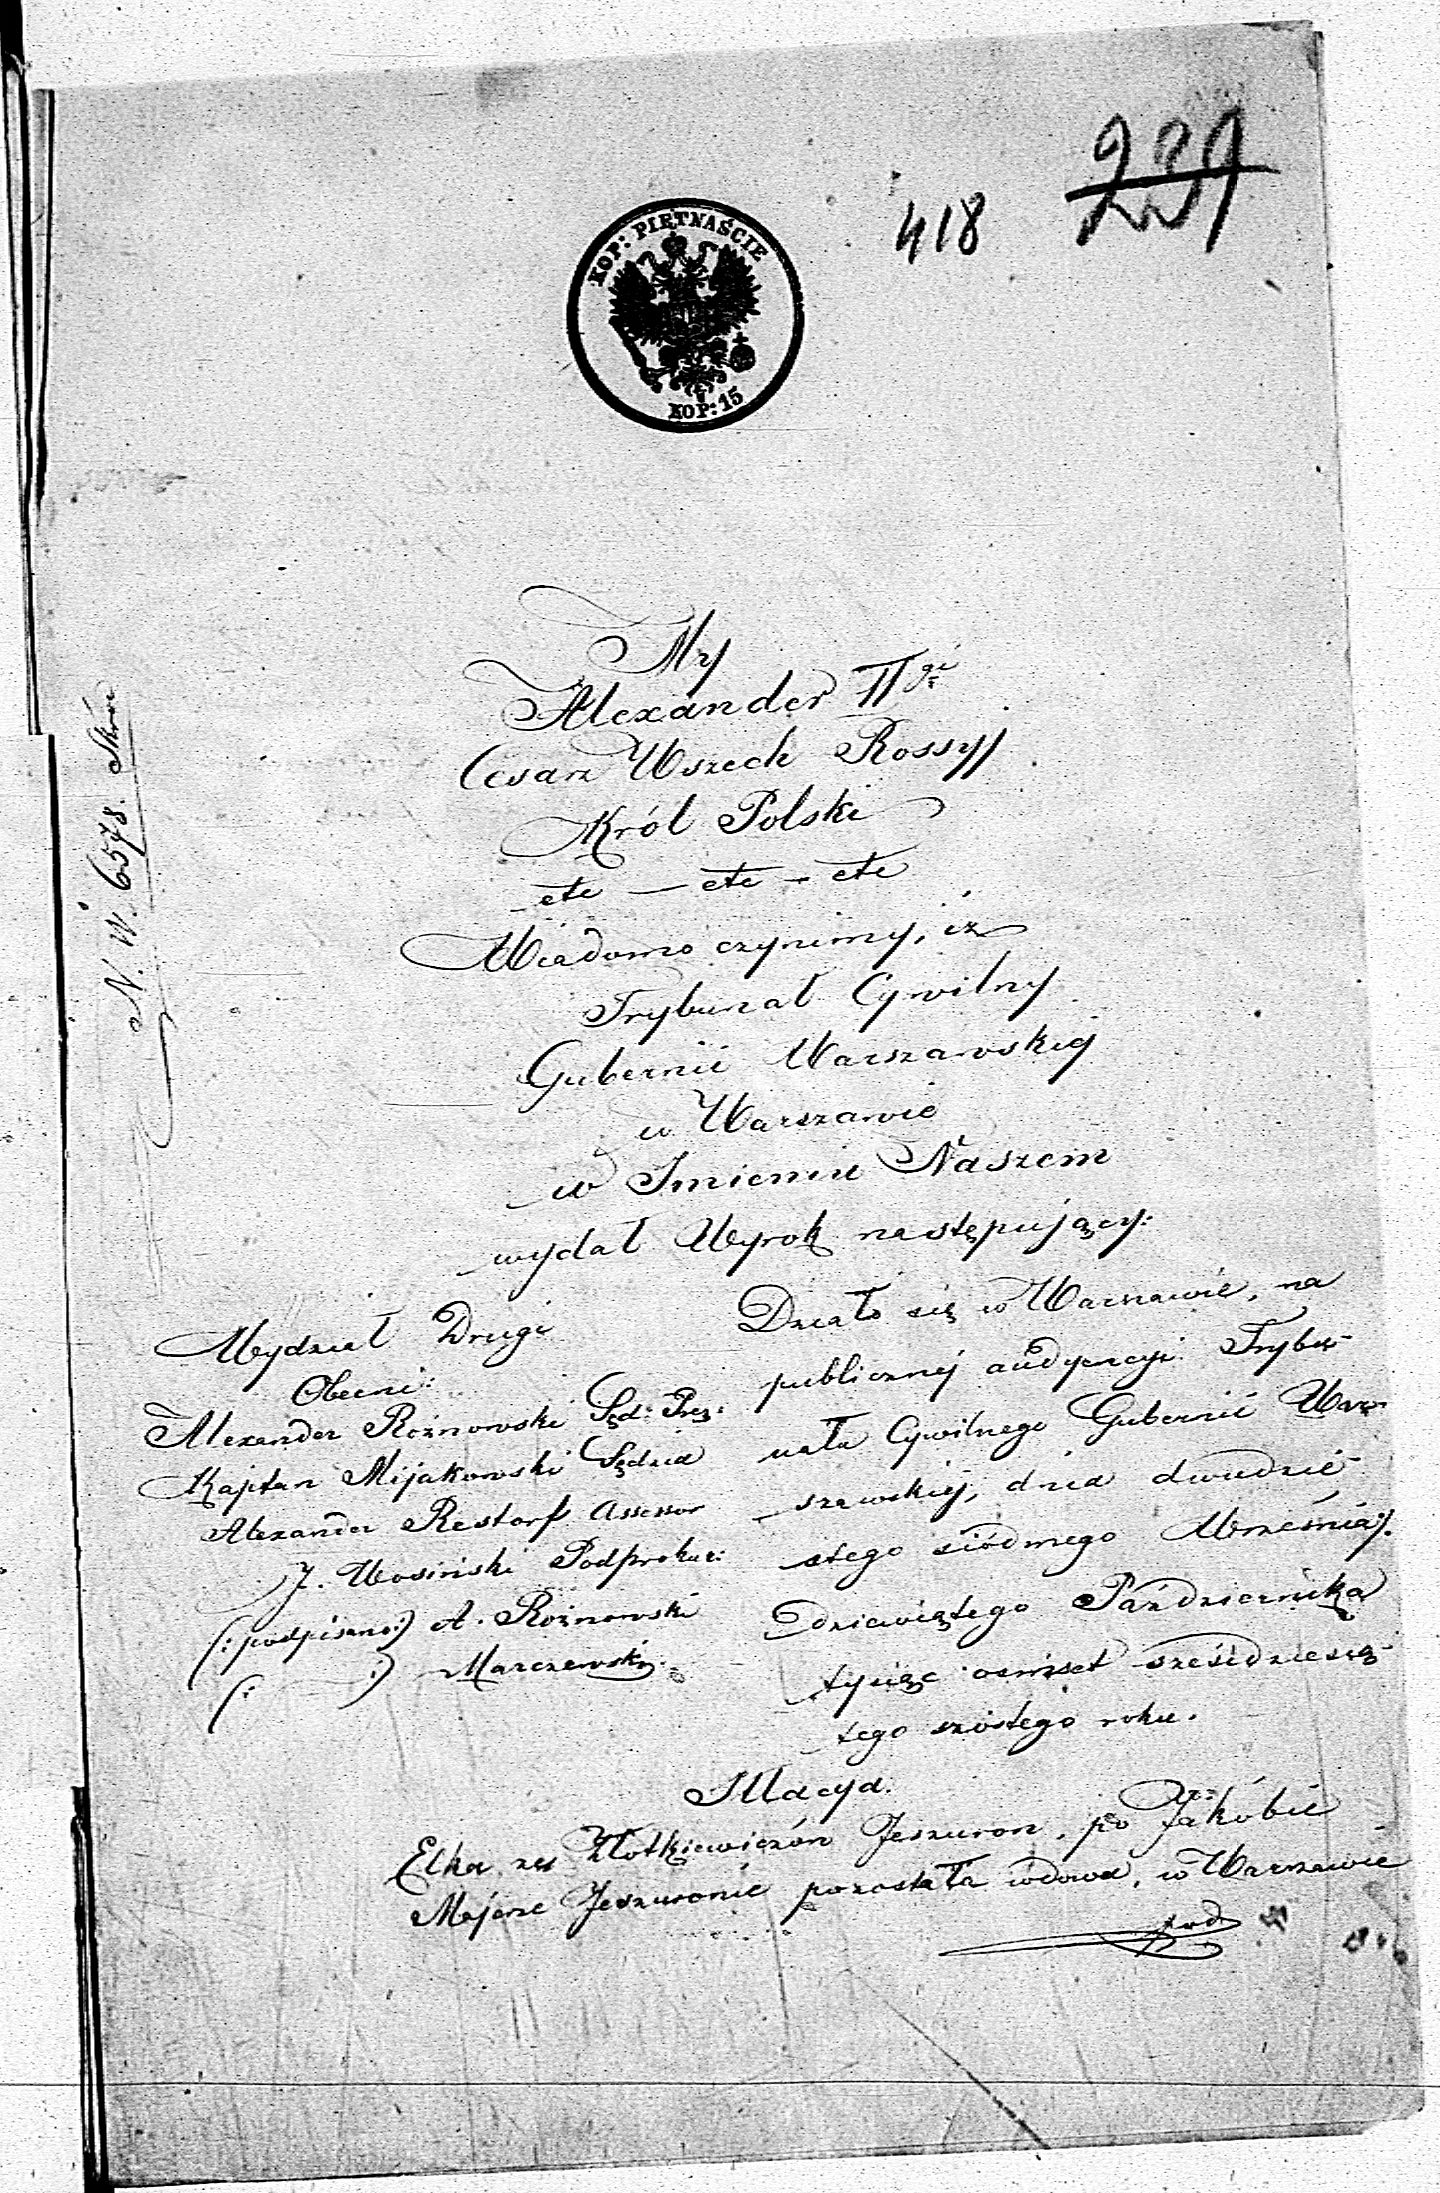 418 239
KOP: PIĘTNAŚCIE
KOP: 15
N. W. 6578.
My
Alexander II gi
Cesarz Wszech Rossyj
Król Polski
etc — etc — etc
Wiadomo czynimy, iż
Trybunał Cywilny
Gubernii Warszawskiej
w Warszawie
w Imieniu Naszem
wydał Wyrok następujący:
Wydział Drugi
Obecni:
Alexander Roźnowski Sęd: Prez:
Kajetan Mijakowski Sędzia
Alexander Restorf Assessor
J. Wosiński Podprokur:
(: podpisano:) A. Roźnowski
(: :) Marczewski.
Działo się w Warszawie, na
publicznej audyencyi Trybu-
nału Cywilnego Gubernii War-
szawskiej, dnia dwudzie-
stego siódmego Września/.
Dziewiątego Października
tysiąc ośmset sześćdziesią-
tego szóstego roku.
Illacya.
Elka ze Złotkiewiczów Jeszuron, po Jakóbie
Mejerze Jeszuronie pozostała wdowa, w Warszawie
pod